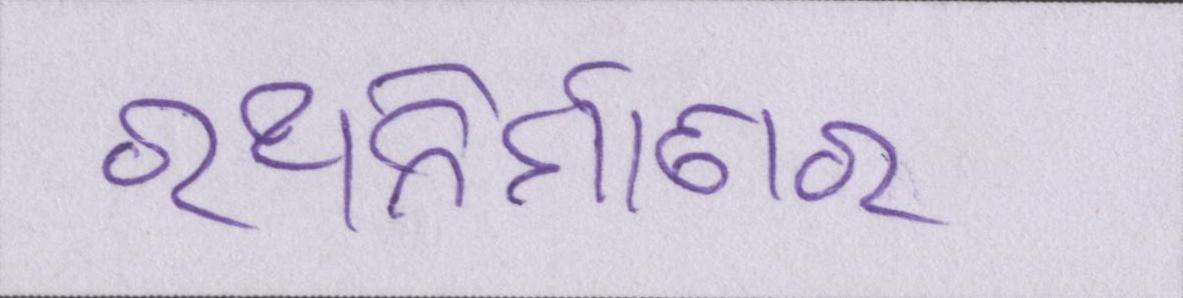 ରଥନିର୍ମାଣର